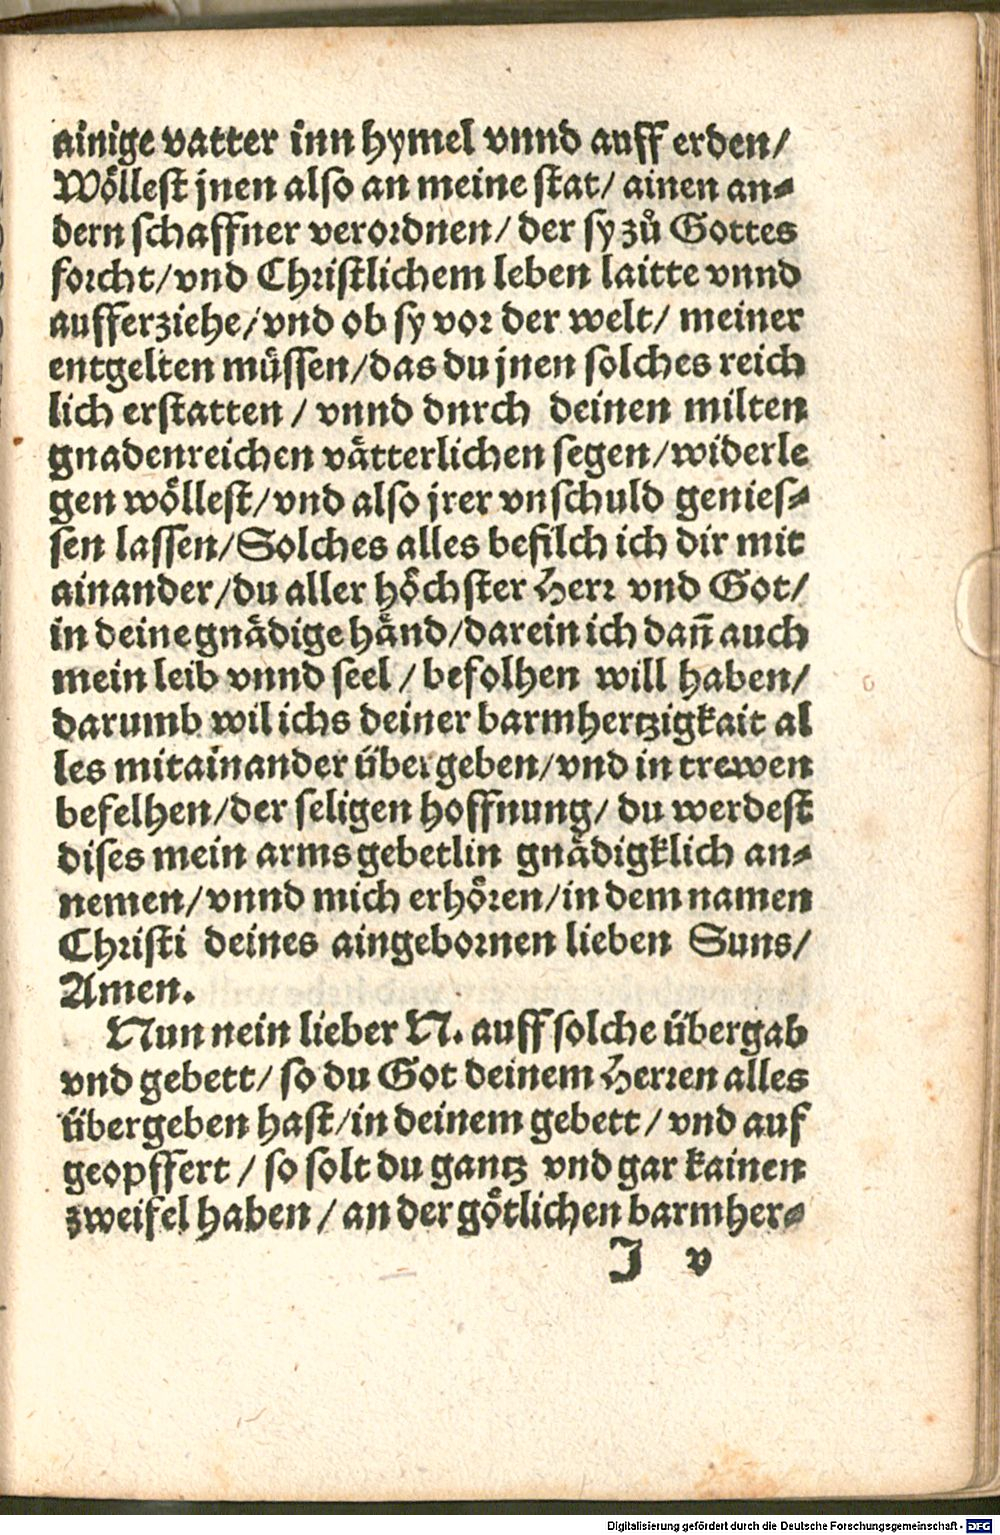 ainige vatter inn hymel vnnd auff erden/
Wöllest jnen also an meine stat/ ainen an⸗
dern schaffner verordnen/ der sy zů Gottes
forcht/vnd Christlichem leben laitte vnnd
aufferziehe/vnd ob sy vor der welt/ meiner
entgelten müssen/das du jnen solches reich
lich erstatten / vnnd dnrch deinen milten
gnadenreichen vätterlichen segen/widerle
gen wöllest/vnd also jrer vnschuld genies⸗
sen lassen/Solches alles befilch ich dir mit
ainander/du aller höchster Herr vnd Got/
in deine gnädige händ/darein ich dañ auch
mein leib vnnd seel / befolhen will haben/
darumb wil ichs deiner barmhertzigkait al
les mitainander übergeben/vnd in trewen
befelhen/der seligen hoffnung/ du werdest
dises mein arms gebetlin gnädigklich an⸗
nemen/vnnd mich erhören/in dem namen
Christi deines aingebornen lieben Suns/
Amen.
Nun nein lieber N. auff solche übergab
vnd gebett/ so du Got deinem Herren alles
übergeben hast/in deinem gebett / vnd auf
geopffert / so solt du gantz vnd gar kainen
zweifel haben / an der götlichen barmher⸗
J v
Digitalisierung gefördert durch die Deutsche Forschungsgemeinschaft - DFG